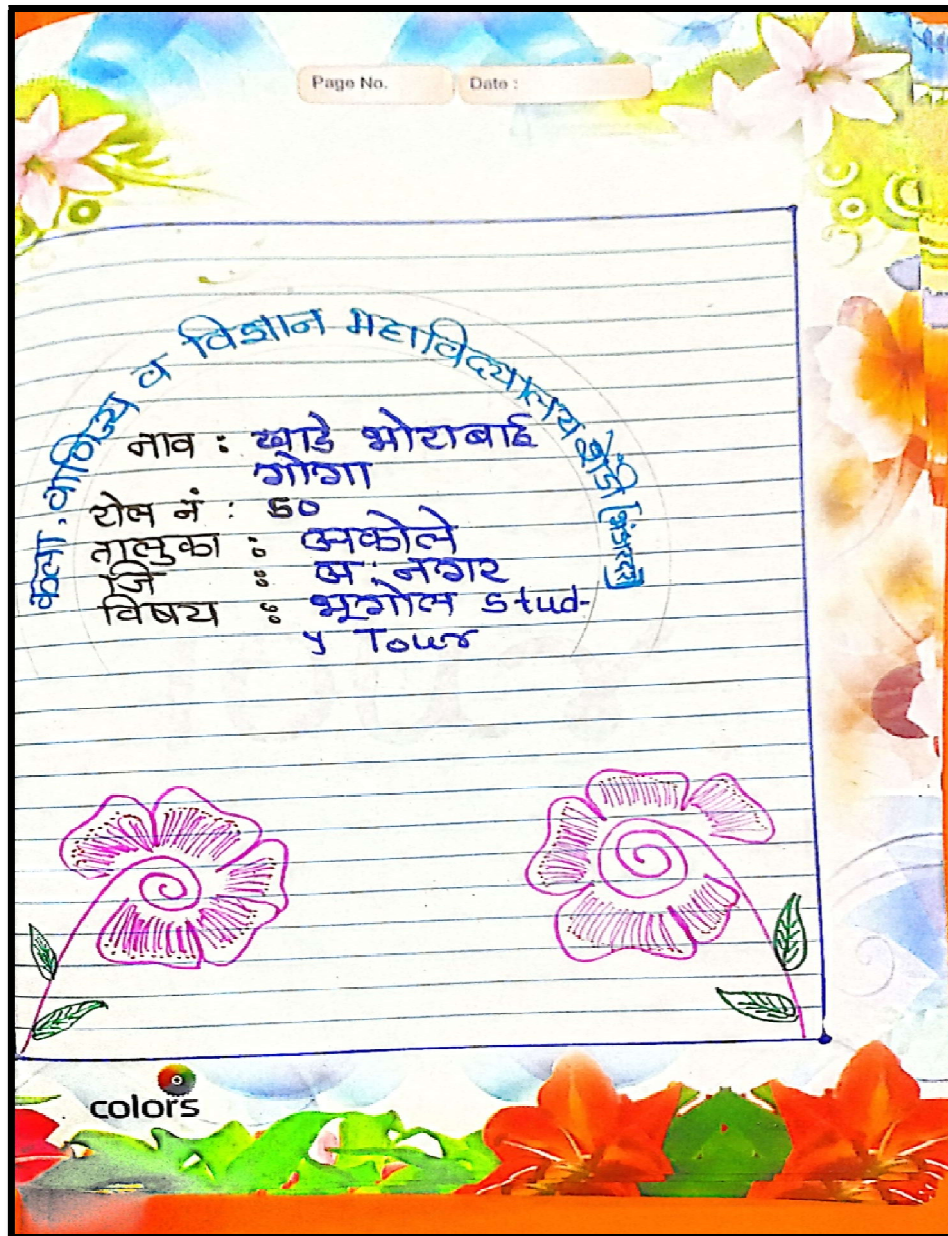 Page No. Date :
कला, वाणिज्य व विज्ञान महाविद्यालय शेंडी (भंडारदरा)
नाव : खाडे भोराबाई
गोगा
रोल नं : 50
तालुका : अकोले
जि : अ. नगर
विषय : भूगोल Stud-
y Tour
colors